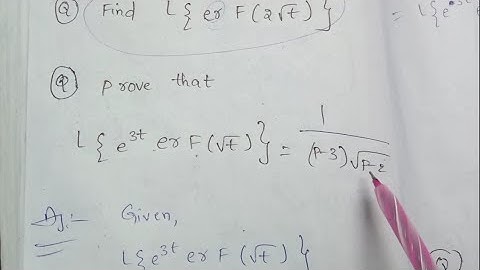 Q Find L{erF(2√t)}
= L{e
Q prove that
L{e^3t erF(√t)} = 1/((P-3)√P-2)
Given,
L{e^3t erF(√t)}